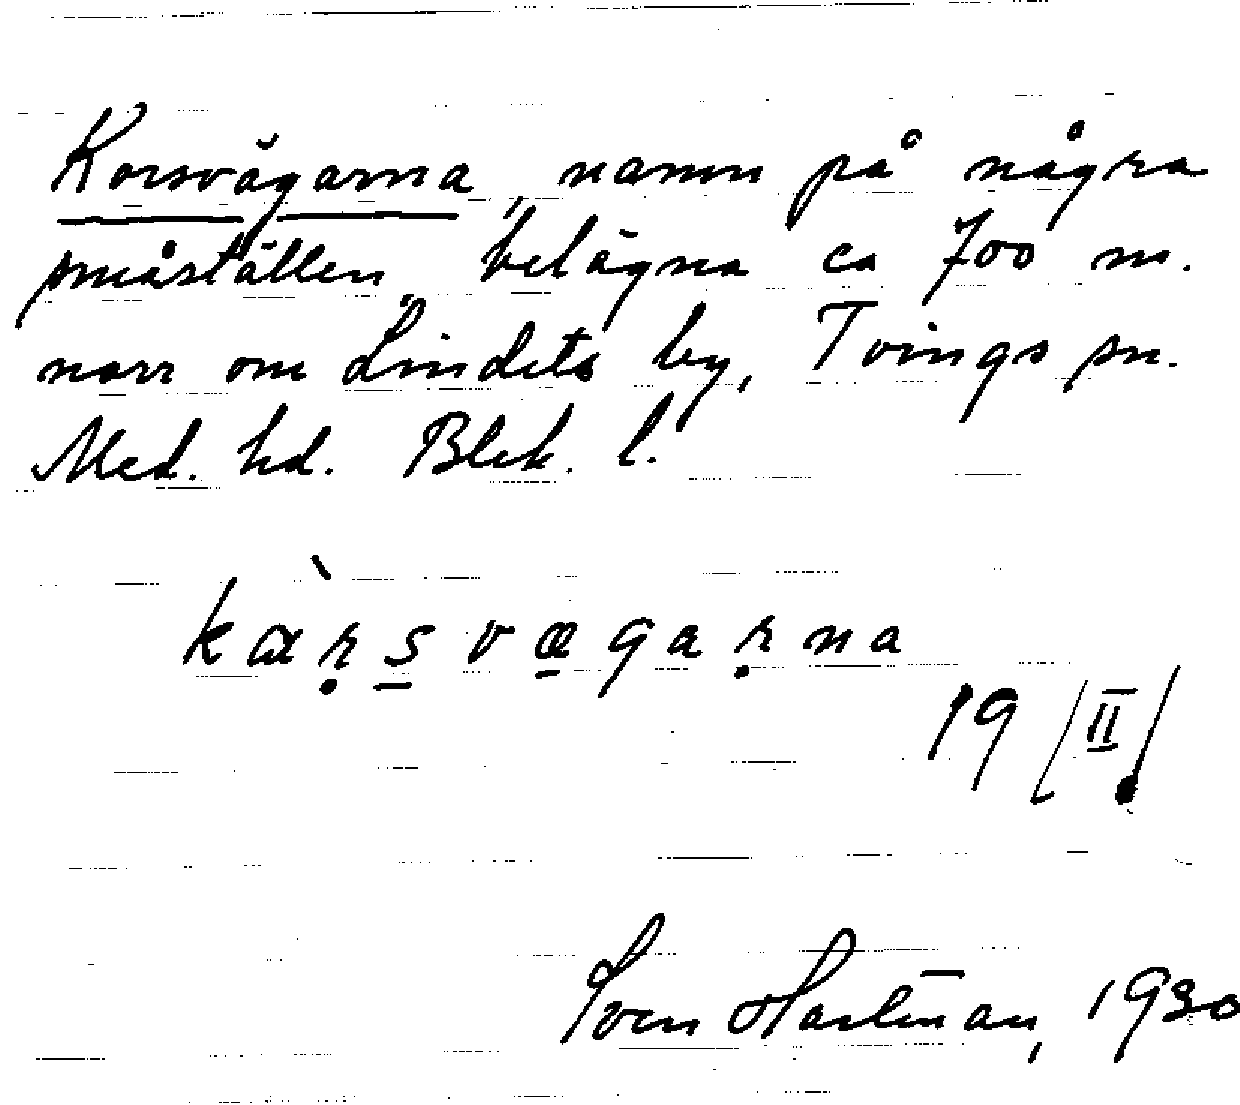 Korsvägarna, namn på några
småställen, belägna ca 700 m.
norr om Lindets by, Tvings sn.
Med. hd. Blek. l.
kàṛs̱væ̱gaṛna
19/II
Sven Hartman, 1930